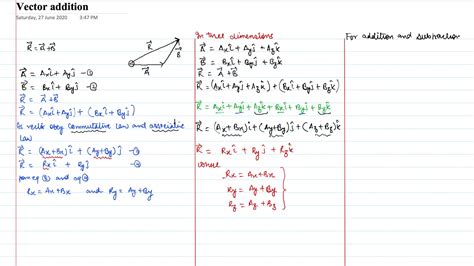 Vector addition
Saturday, 27 June 2020 3:47 PM
R⃗ = A⃗ + B⃗
R⃗
B⃗
A⃗
A⃗ = Axî + Ayĵ -①
B⃗ = Bxî + Byĵ -②
R⃗ = A⃗ + B⃗
R⃗ = (Axî + Ayĵ) + (Bxî + Byĵ)
As vectors obey commutative law and associative
law
R⃗ = (Ax+Bx)î + (Ay+By)ĵ -③
R⃗ = Rxî + Ryĵ -④
from eq ③ and eq ④
Rx = Ax+Bx and Ry = Ay+By
In three dimensions
A⃗ = Axî + Ayĵ + Azk̂
B⃗ = Bxî + Byĵ + Bzk̂
R⃗ = A⃗ + B⃗
R⃗ = (Axî + Ayĵ + Azk̂) + (Bxî + Byĵ + Bzk̂)
R⃗ = Axî + Ayĵ + Azk̂ + Bxî + Byĵ + Bzk̂
R⃗ = (Ax+Bx)î + (Ay+By)ĵ + (Az+Bz)k̂
R⃗ = Rxî + Ryĵ + Rzk̂
where
Rx = Ax+Bx
Ry = Ay+By
Rz = Az+Bz
For addition and subtraction